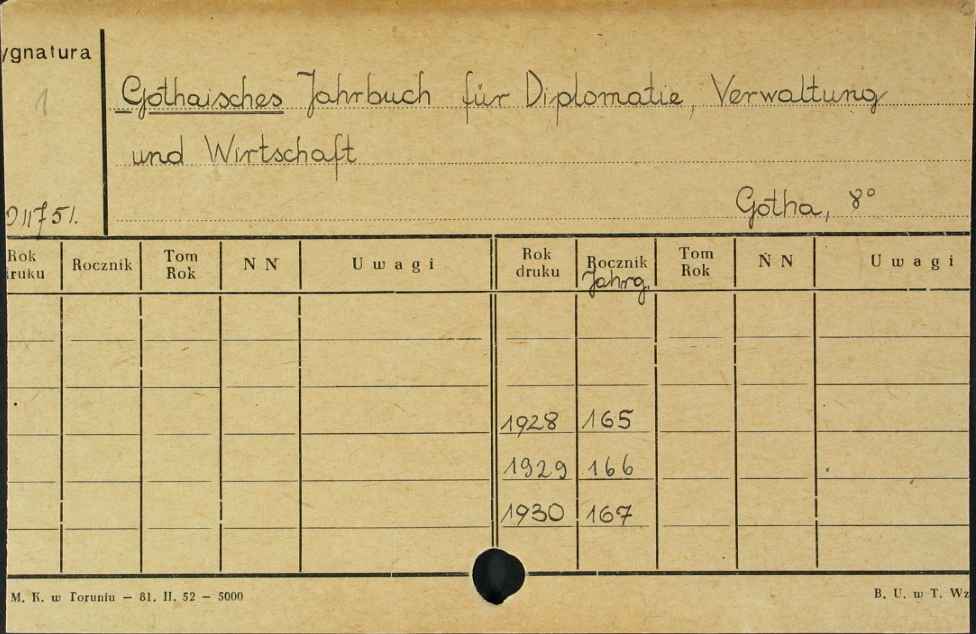 ygnatura
1
Gothaisches Jahrbuch für Diplomatie, Verwaltung
und Wirtschaft
011751.
Gotha, 8°
Rok
ruku Rocznik Tom
Rok N N Uwagi Rok
druku Rocznik
Jahrg. Tom
Rok N N Uwagi
1928 165
1929 166
1930 167
M. K. w Toruniu — 81. II. 52 — 5000
B. U. w T. Wz